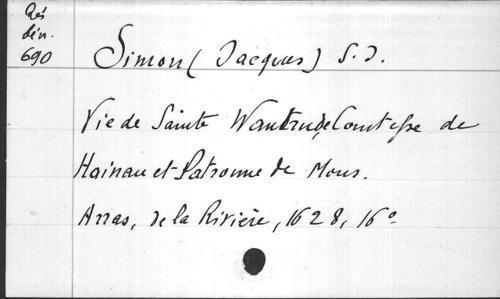 Rés
bin.
690
Simon (Jacques) S.J.
Vie de Sainte Wautrude Comtesse de
Hainau et Patronne de Mons.
Arras, de la Rivière, 1628, 16°